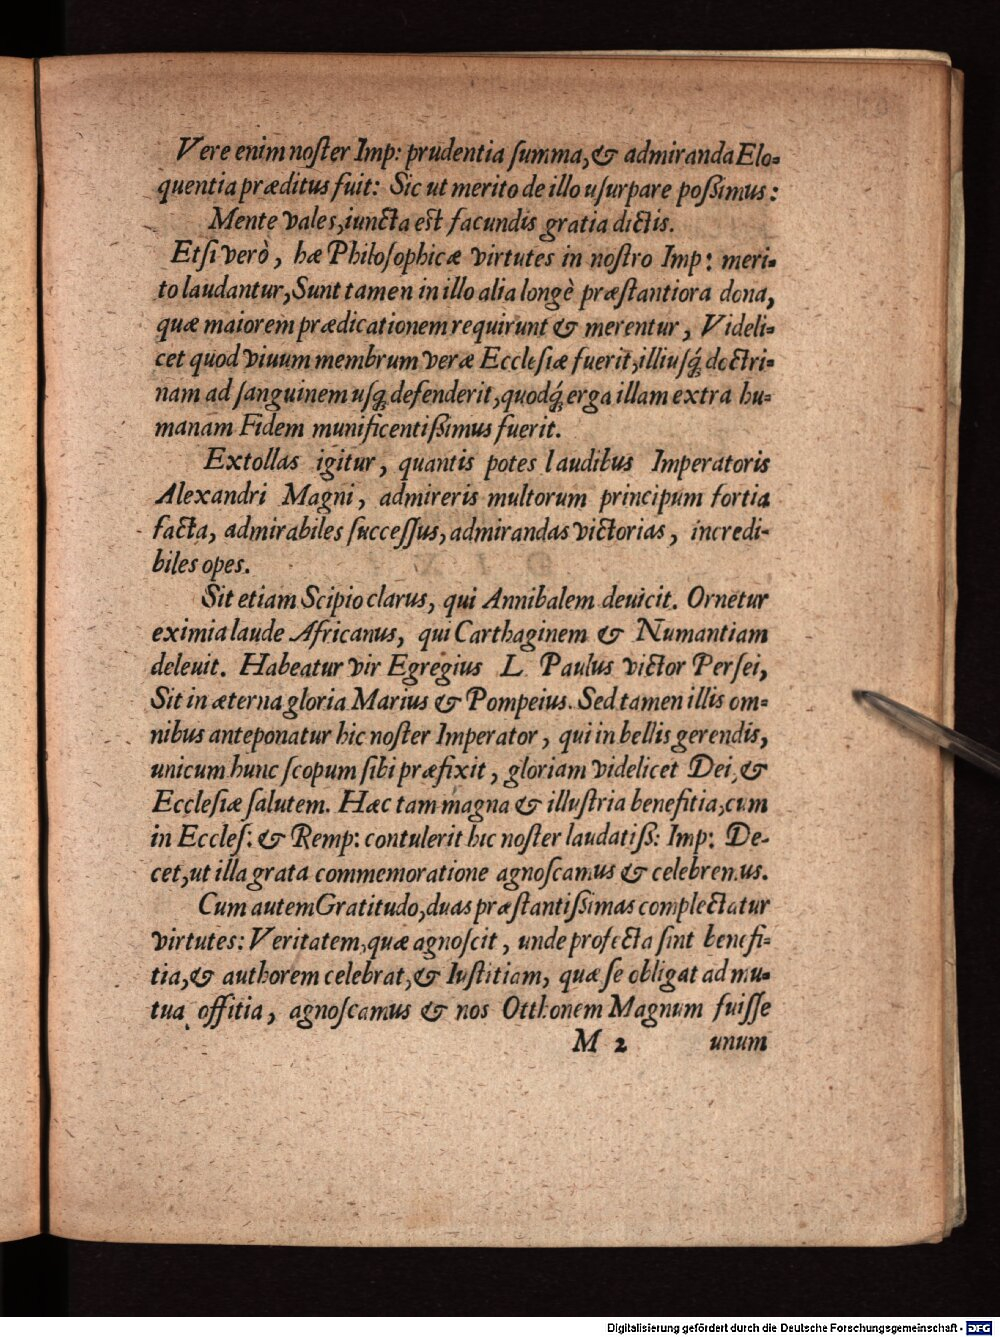 Vere enim noſter Imp: prudentia ſumma, & admiranda Elo=
quentia præditus fuit: Sic ut merito de illo uſurpare poßimus:
Mente vales, iuncta est facundis gratia dictis.
Etſi verò, hæ Philoſophicæ virtutes in noſtro Imp: meri=
to laudantur, Sunt tamen in illo alia longè præſtantiora dona,
quæ maiorem prædicationem requirunt & merentur, Videli=
cet quod viuum membrum veræ Eccleſiæ fuerit, illiusq́; doctri=
nam ad ſanguinem uſq; defenderit, quodq́; erga illam extra hu=
manam Fidem munificentißimus fuerit.
Extollas igitur, quantis potes laudibus Imperatoris
Alexandri Magni, admireris multorum principum fortia
facta, admirabiles ſucceſſus, admirandas victorias, incredi-
biles opes.
Sit etiam Scipio clarus, qui Annibalem deuicit. Ornetur
eximia laude Africanus, qui Carthaginem & Numantiam
deleuit. Habeatur vir Egregius L. Paulus victor Perſei,
Sit in æterna gloria Marius & Pompeius. Sed tamen illis om=
nibus anteponatur hic noſter Imperator, qui in bellis gerendis,
unicum hunc ſcopum ſibi præfixit, gloriam videlicet Dei, &
Eccleſiæ ſalutem. Hæc tam magna & illuſtria benefitia, cum
in Eccleſ: & Remp: contulerit hic noſter laudatiß: Imp: De-
cet, ut illa grata commemoratione agnoſcamus & celebremus.
Cum autem Gratitudo, duas præſtantißimas complectatur
virtutes: Veritatem, quæ agnoſcit, unde profecta ſint benefi=
tia, & authorem celebrat, & Iuſtitiam, quæ ſe obligat ad mu=
tua offitia, agnoſcamus & nos Otthonem Magnum fuiſſe
M 2 unum
Digitalisierung gefördert durch die Deutsche Forschungsgemeinschaft - DFG